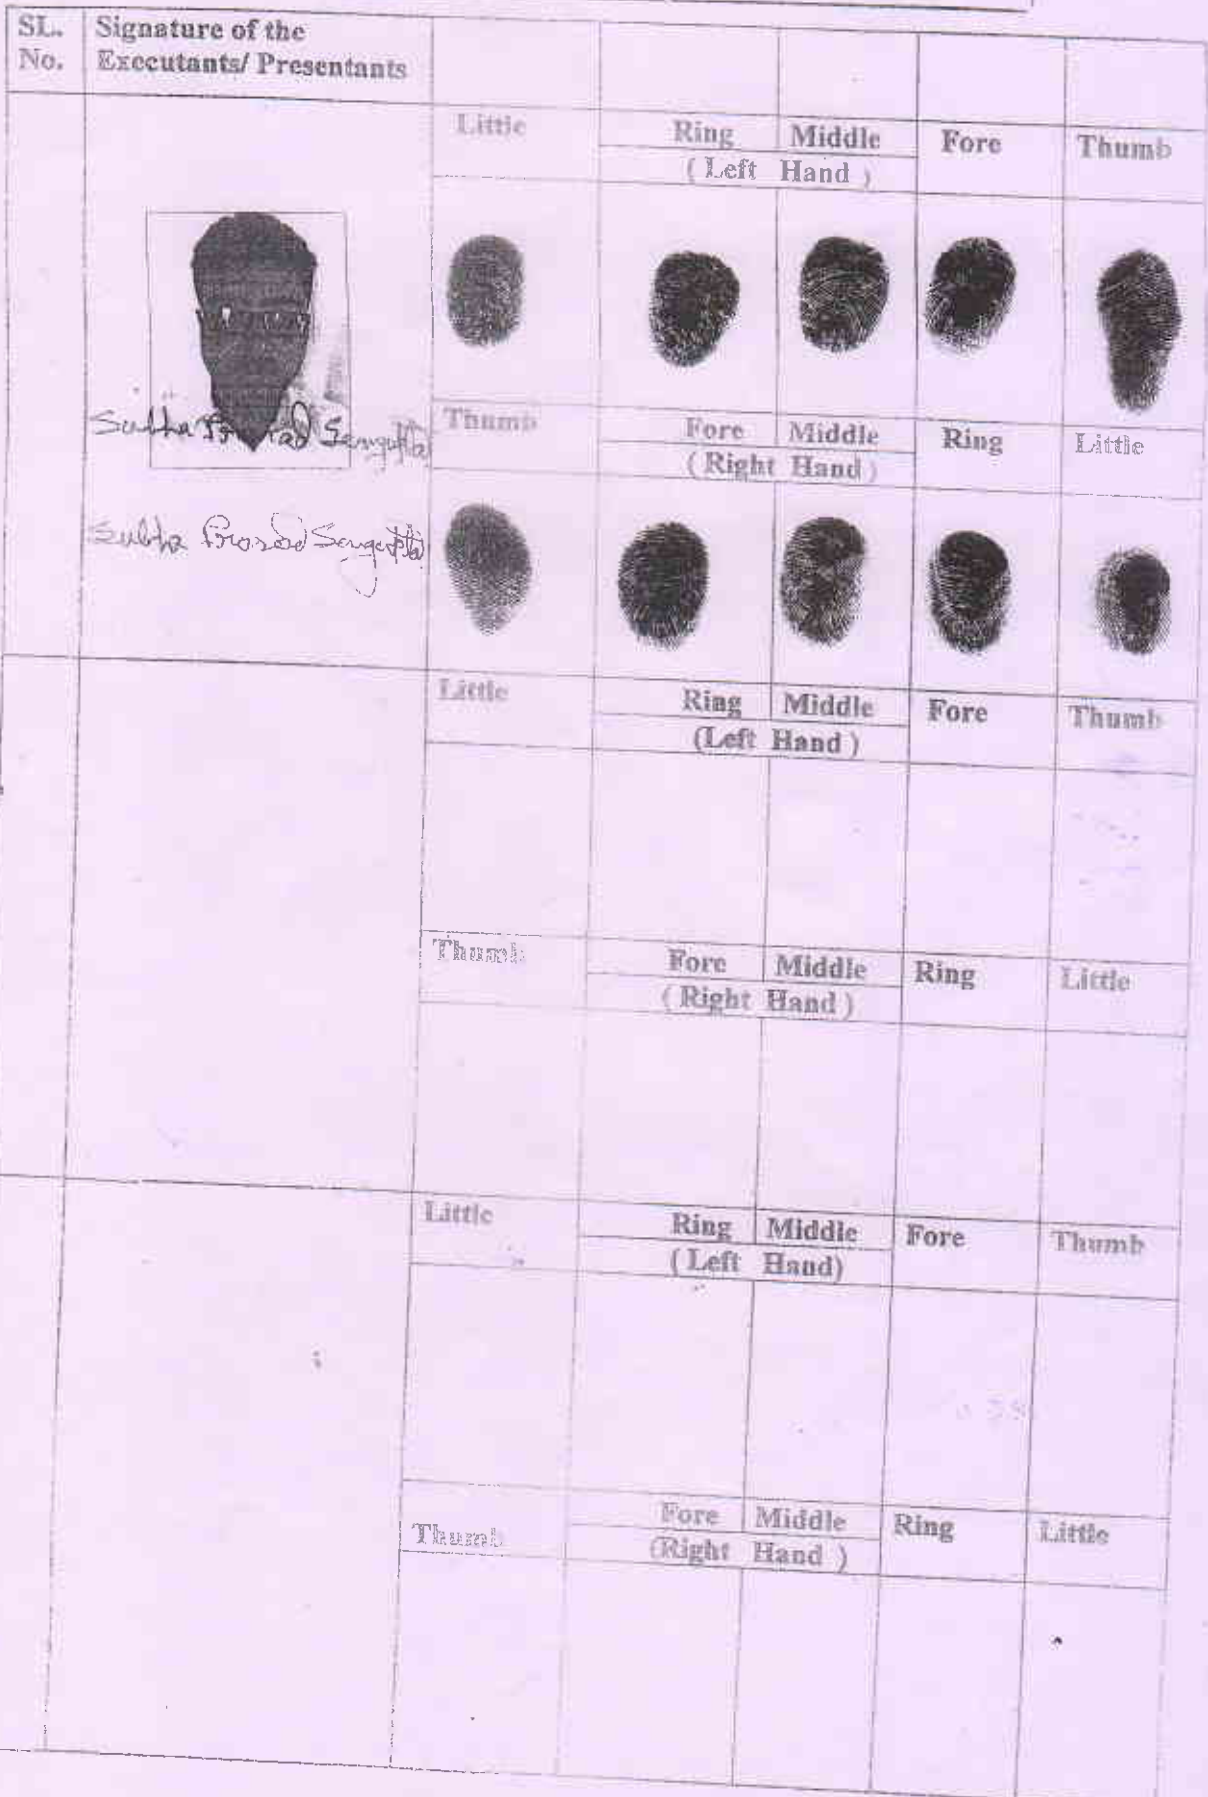 SL. No.
Signature of the Executants/ Presentants
Little Ring Middle Fore Thumb
( Left Hand )
Subha Prosad Sengupta
Thumb Fore Middle Ring Little
( Right Hand )
Subha Prosad Sengupta
Little Ring Middle Fore Thumb
(Left Hand )
Thumb Fore Middle Ring Little
( Right Hand )
Little Ring Middle Fore Thumb
( Left Hand)
Thumb Fore Middle Ring Little
(Right Hand )